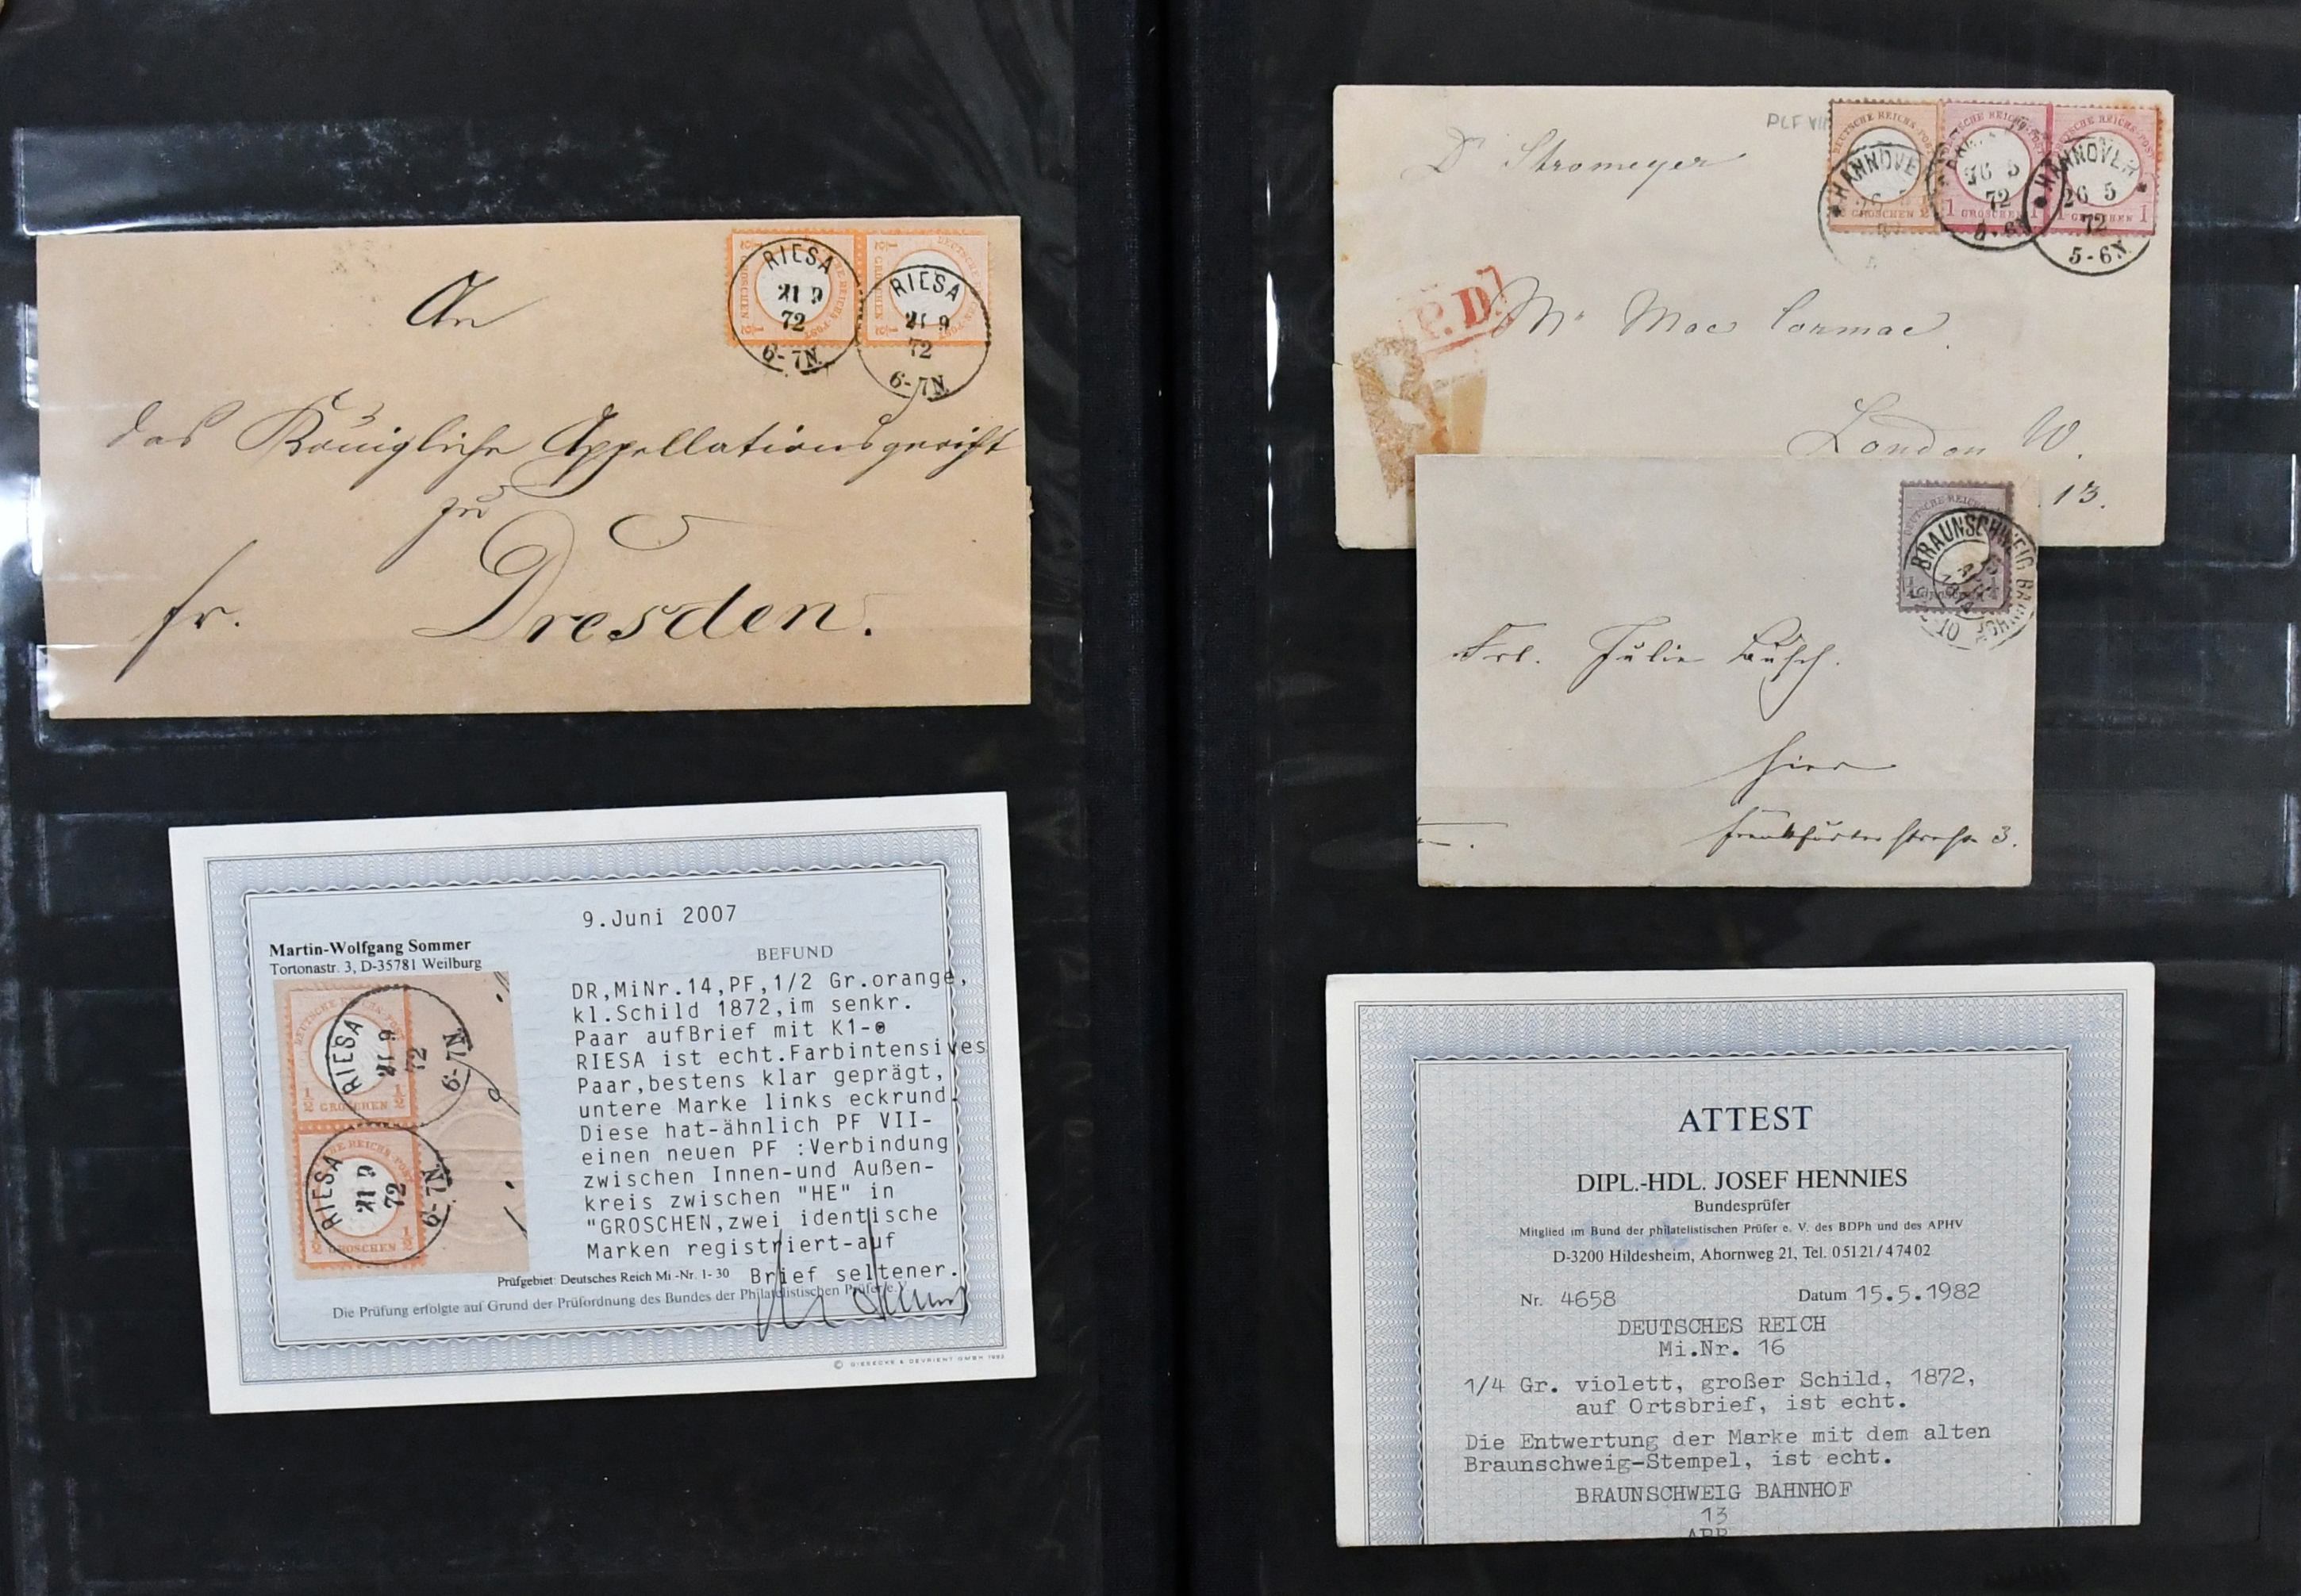 RIESA
21 9
72
6-7N.
RIESA
21 9
72
6-7N.
An
das Königliche Appellationsgericht
zu
fr. Dresden.
9.Juni 2007
Martin-Wolfgang Sommer
Tortonastr. 3, D-35781 Weilburg
BEFUND
DR,MiNr.14,PF,1/2 Gr.orange,
kl.Schild 1872,im senkr.
Paar aufBrief mit K1-
RIESA ist echt.Farbintensives
Paar,bestens klar geprägt,
untere Marke links eckrund.
Diese hat-ähnlich PF VII-
einen neuen PF :Verbindung
zwischen Innen-und Außen-
kreis zwischen "HE" in
"GROSCHEN,zwei identische
Marken registriert-auf
Brief seltener.
RIESA
21 9
72
6-7N.
½ GROSCHEN ½
RIESA
21 9
72
6-7N.
GROSCHEN ½
Prüfgebiet: Deutsches Reich Mi -Nr. 1- 30
Die Prüfung erfolgte auf Grund der Prüfordnung des Bundes der Philatelistischen Prüfer e.V.
© GIESECKE & DEVRIENT GMBH 1983
PLF VII
DEUTSCHE REICHS-POST
HANNOVE
GROSCHEN
26 5
72
1 GROSCHEN 1
HANNOVER
26 5
72
5-6N.
Dr Stromeyer
P.D.
Mr Mac Cormac.
London W.
13.
BRAUNSCHWEIG BAHNHOF
Frl. Julie Busch.
hier
Frankfurter Strasse 3.
ATTEST
DIPL.-HDL. JOSEF HENNIES
Bundesprüfer
Mitglied im Bund der philatelistischen Prüfer e. V. des BDPh und des APHV
D-3200 Hildesheim, Ahornweg 21, Tel. 05121/47402
Nr. 4658 Datum 15.5.1982
DEUTSCHES REICH
Mi.Nr. 16
1/4 Gr. violett, großer Schild, 1872,
auf Ortsbrief, ist echt.
Die Entwertung der Marke mit dem alten
Braunschweig-Stempel, ist echt.
BRAUNSCHWEIG BAHNHOF
13
APR